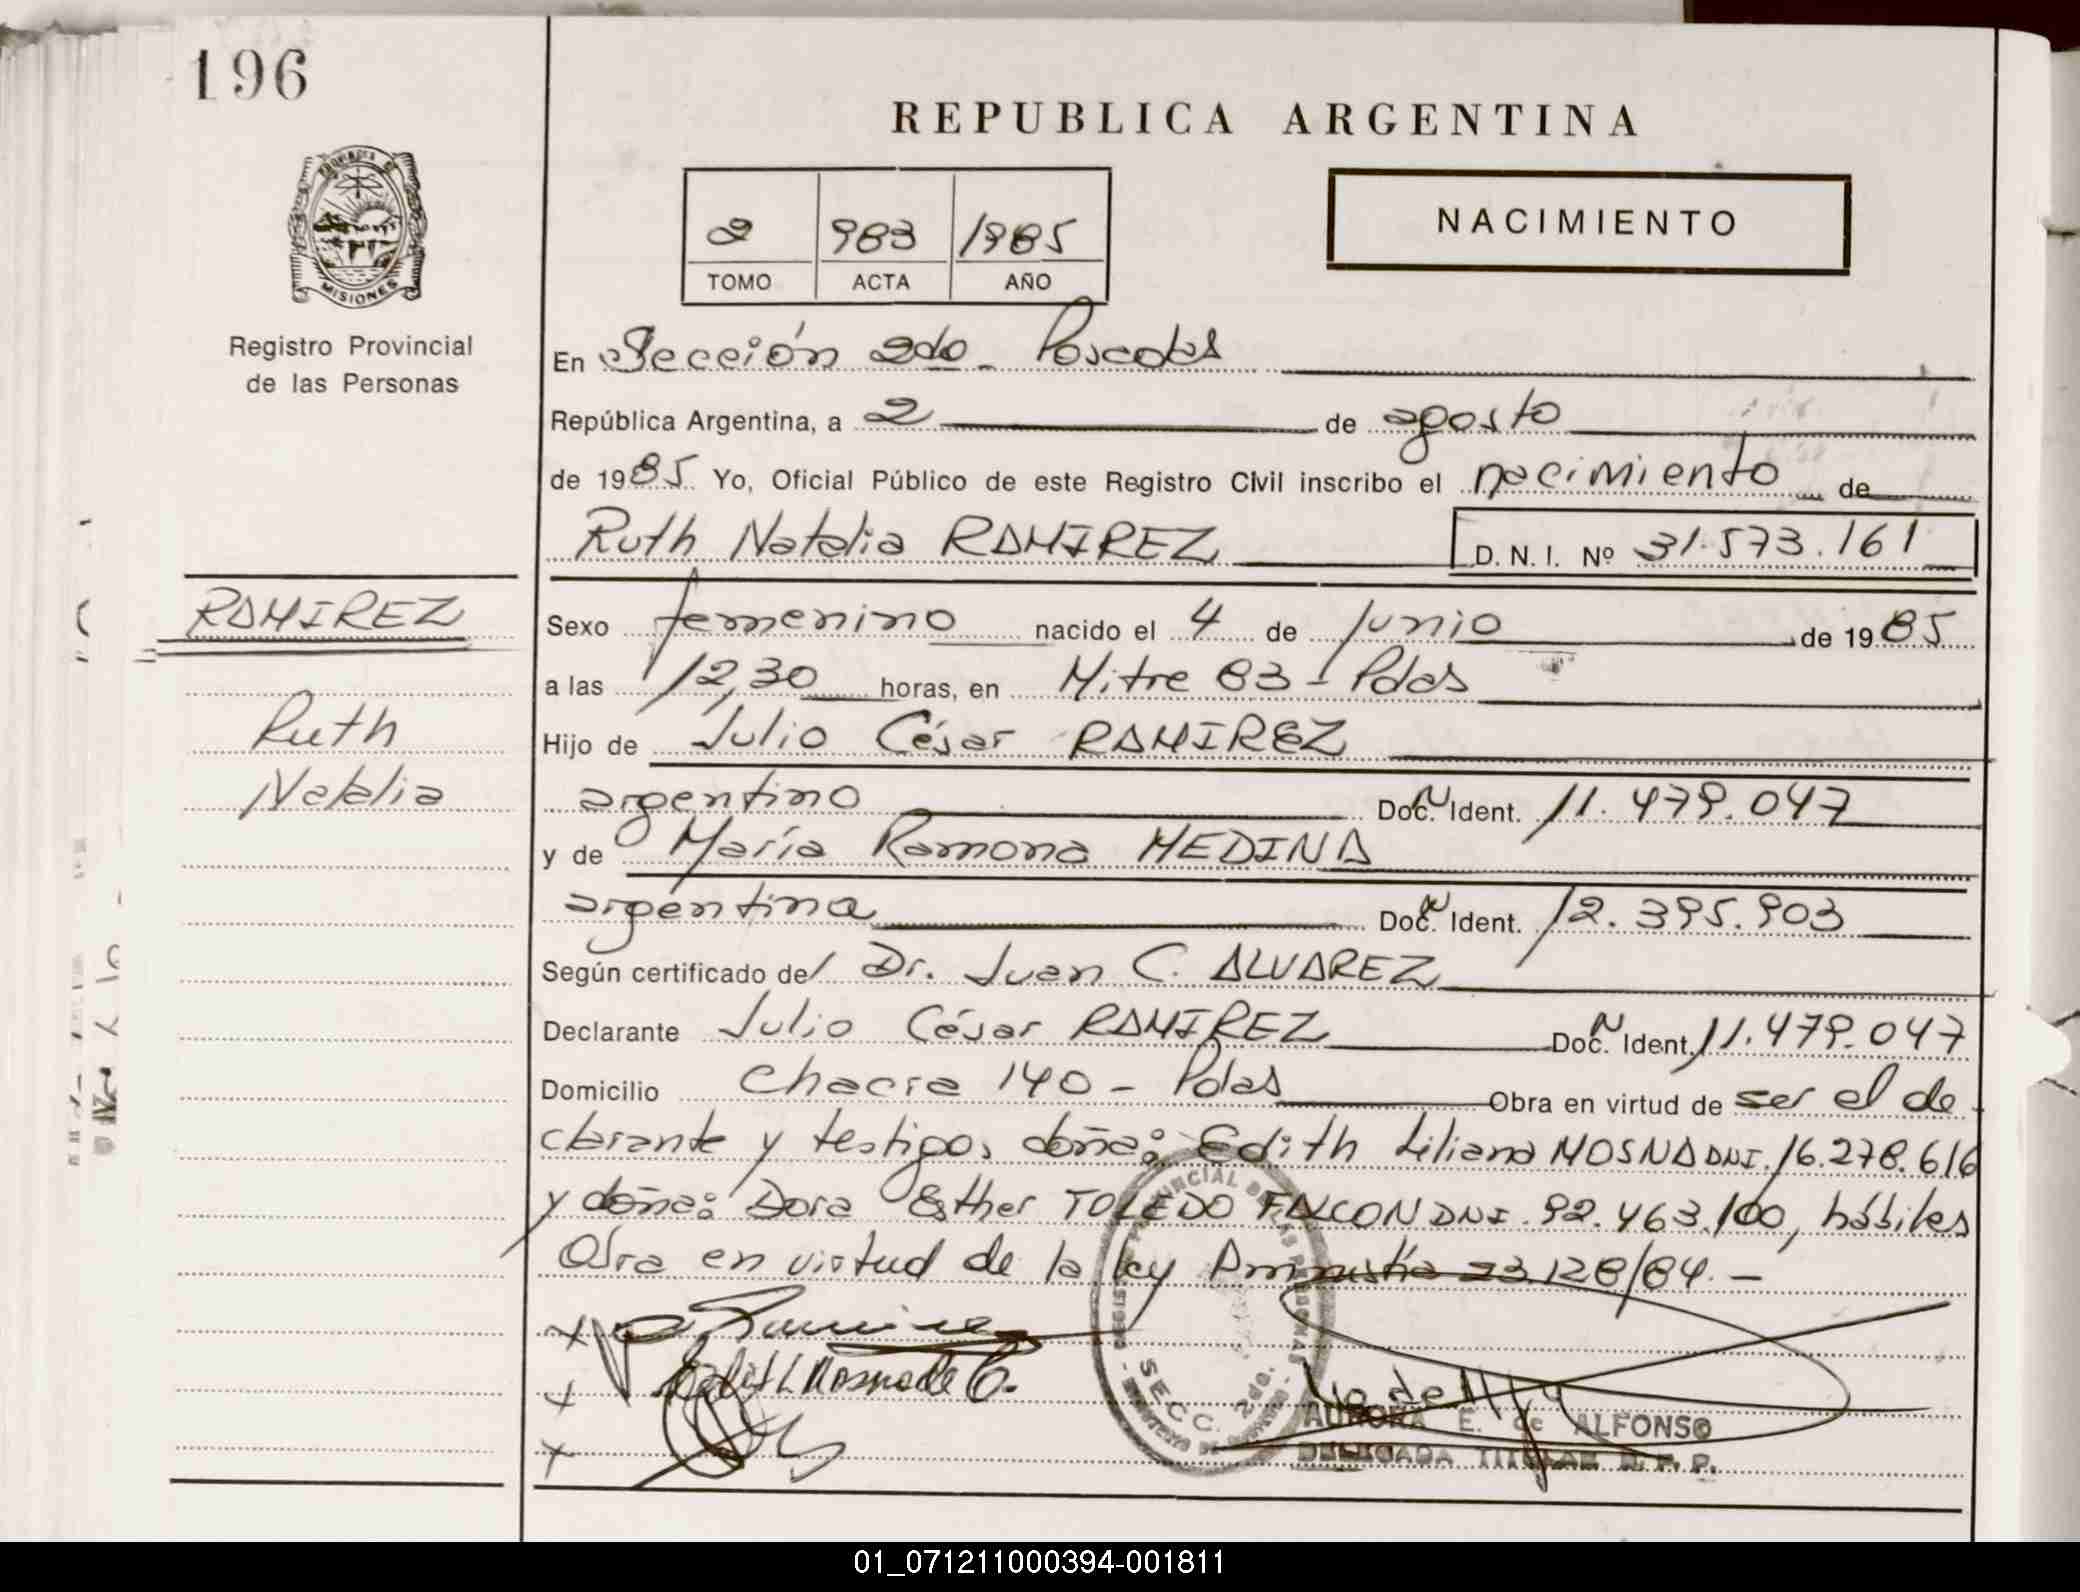 196
REPUBLICA ARGENTINA
PROVINCIA DE
MISIONES
2 983 1985
TOMO ACTA AÑO
NACIMIENTO
Registro Provincial
de las Personas
En Sección 2do. Posadas
República Argentina, a 2 de agosto
de 1985 Yo, Oficial Público de este Registro Civil inscribo el nacimiento de
Ruth Natalia RAMIREZ D. N. I. Nº 31.573.161
RAMIREZ
Ruth
Natalia
Sexo femenino nacido el 4 de junio de 1985
a las 12,30 horas, en Mitre 83 - Pdas
Hijo de Julio César RAMIREZ
argentino Doc. Ident. 11.479.047
y de María Ramona MEDINA
argentina Doc. Ident. 12.395.903
Según certificado del Dr. Juan C. ALVAREZ
Declarante Julio César RAMIREZ Doc. Ident. 11.479.047
Domicilio Chacra 140 - Pdas Obra en virtud de ser el de
clarante y testigos doña: Edith Liliana MOSNA DNI. 16.278.616
y doña: Dora Esther TOLEDO FALCON DNI. 92.463.100, hábiles
Obra en virtud de la ley Amnistía 23.128/84.-
Edith L Mosna de C.
SECC. 2do.
AURORA E. de ALFONSO
DELEGADA TITULAR R. P. P.
01_071211000394-001811